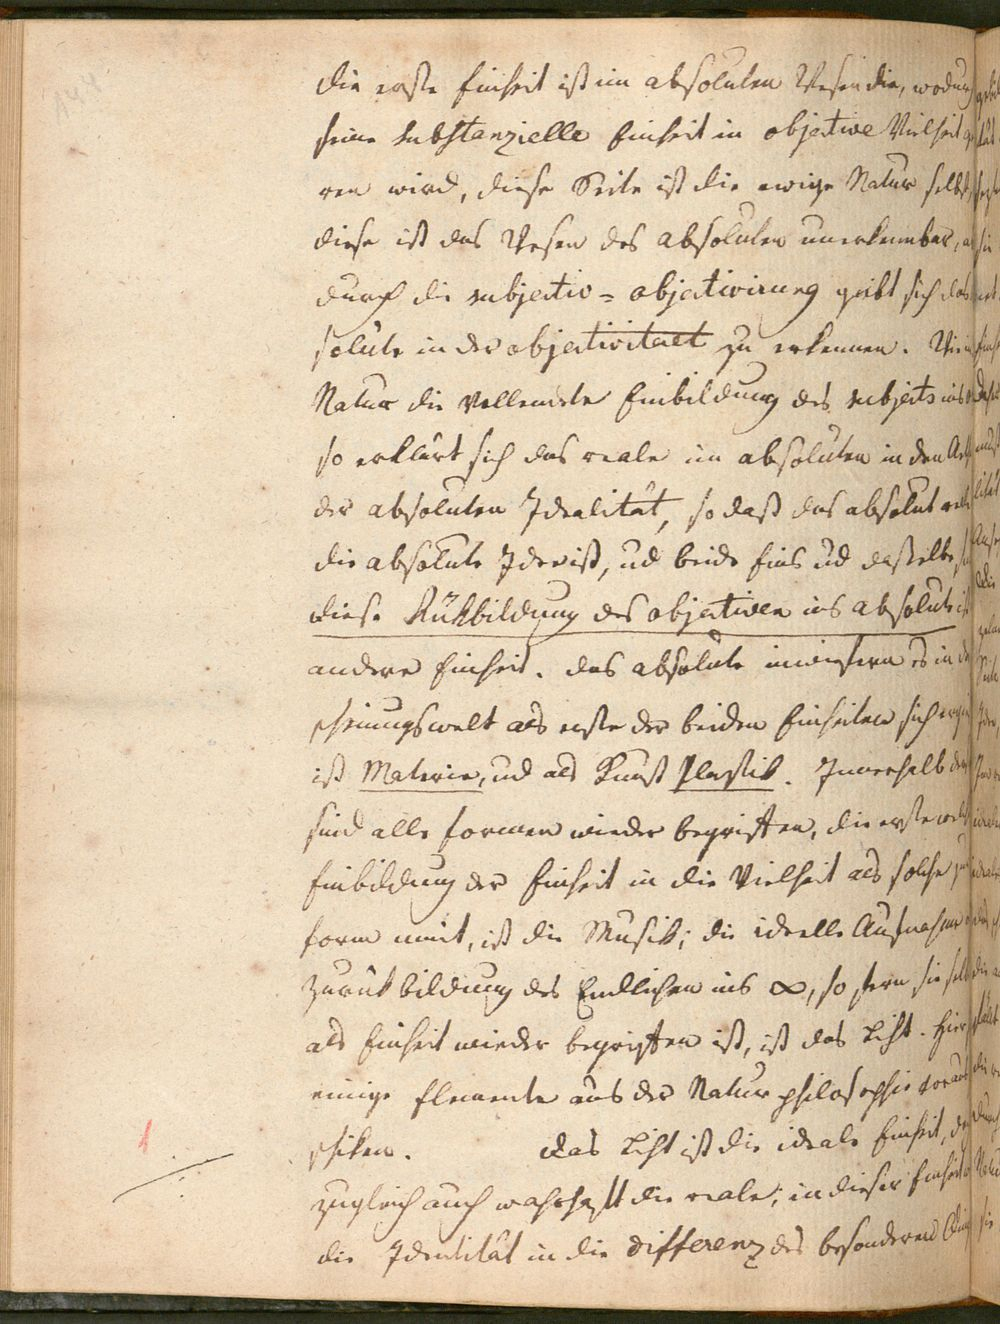 die erste Einheit ist im absoluten Wesen die, wodurch
seine substanzielle Einheit in objective Vielheit
ren wird, diese Seite ist die ewige Natur selbst,
diese ist das Wesen des absoluten unerkennbar,
durch die subjectiv = objectivirung giebt sich das
solute in der objectivitaet zu erkennen.
Natur die vollendete Einbildung des subjects ins
so erklärt sich das reale im absoluten in den
der absoluten Idealität, so daß das absolut reale
die absolute Idee ist, ud beide Eins ud dasselbe,
diese Rükbildung des objectiven ins absolute ist
andere Einheit. das absolute inwiefern es in der
scheinungswelt als erste der beiden Einheiten sich
ist Materie, ud als Kunst Plastik. Innerhalb
sind alle Formen wieder begriffen, die erste welche
Einbildung der Einheit in die Vielheit als solche zur
Form nimt, ist die Musik; die ideelle Aufnahme
Zurükbildung des Endlichen ins ∞, so fern sie selbst
als Einheit wieder begriffen ist, ist das Licht. Hier
einige Elemente aus der Naturphilosophie voraus
schiken. das Licht ist die ideale Einheit,
zugleich auch wahrhaft die reale; in dieser Einheit
die Identität in die differenz des besonderen